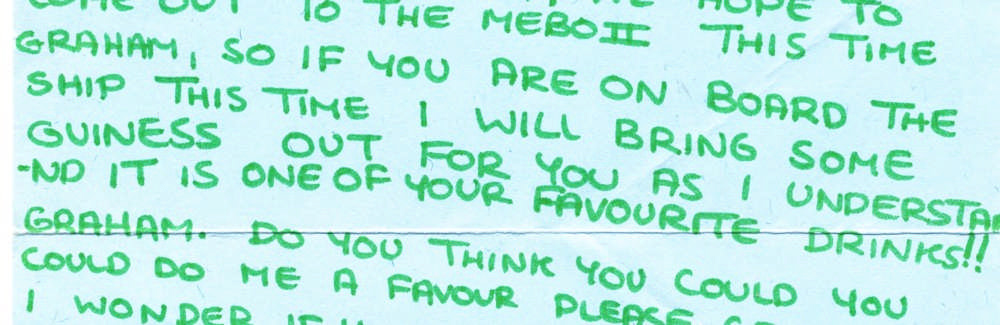 COME OUT TO THE MEBO II THIS TIME
GRAHAM, SO IF YOU ARE ON BOARD THE
SHIP THIS TIME I WILL BRING SOME
GUINESS OUT FOR YOU AS I UNDERSTA
-ND IT IS ONE OF YOUR FAVOURITE DRINKS!!
GRAHAM. DO YOU THINK YOU COULD YOU
COULD DO ME A FAVOUR PLEASE
I WONDER IF